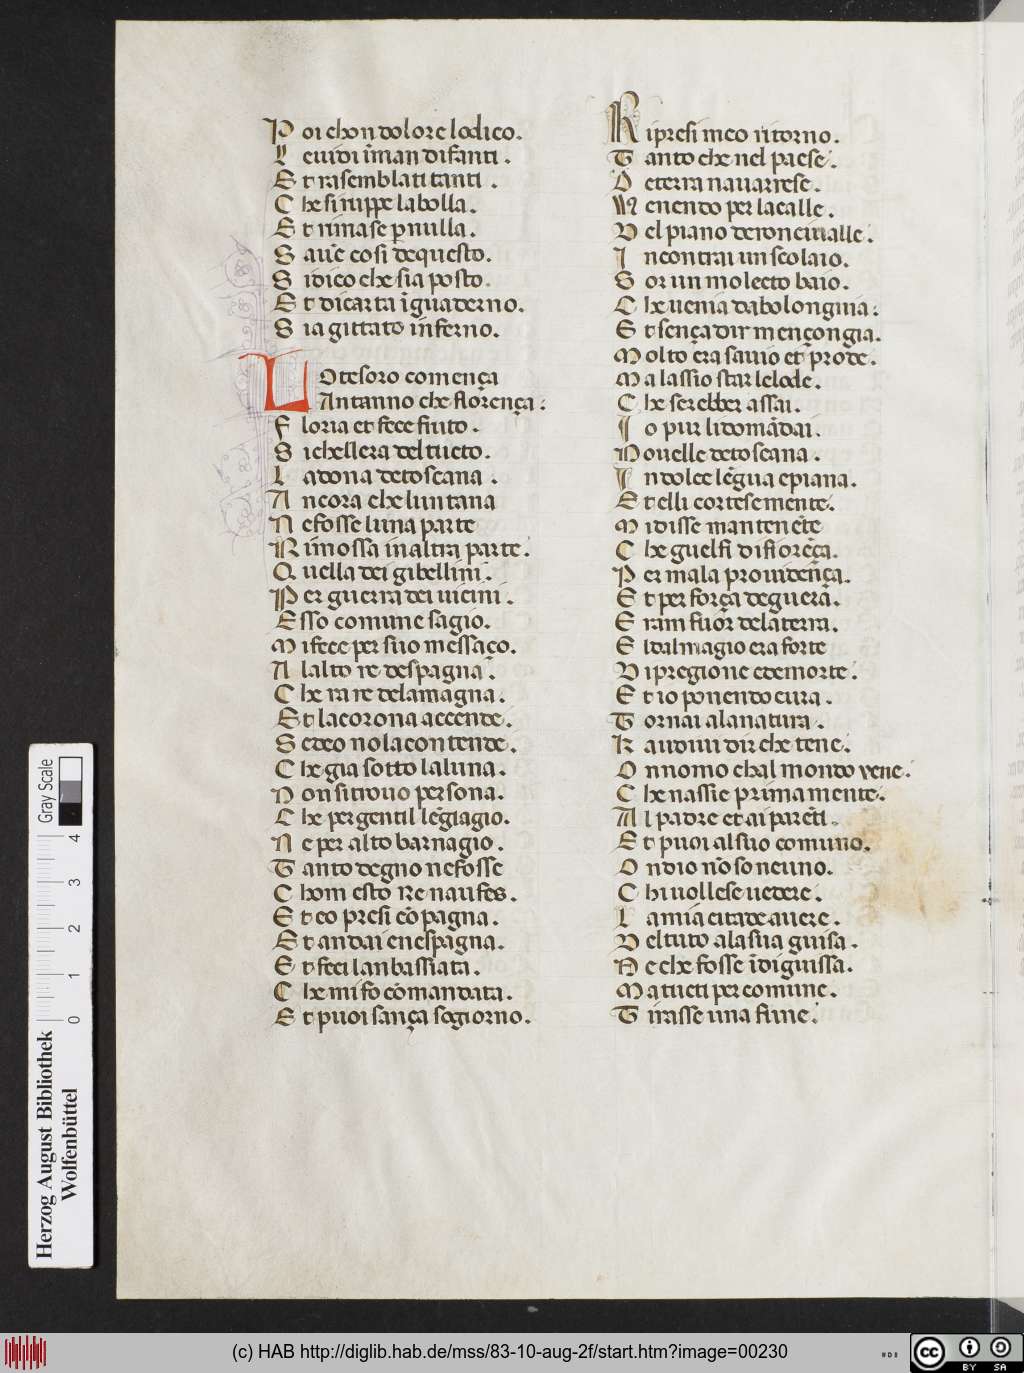 P oi chon dolore lodico.
L euidi ĩman difanti.
E t rasemblati tanti.
C he si ruppe la bolla.
E t rimase p nulla.
S auẽ cosi de questo.
S i dico che sia posto.
E t di carta ĩ guaderno.
S ia gittato in ferno.
LO tesoro comença
Antanno che florença:
F loria et fece fruto.
S ichellera del tucto.
L a dõna de toscana.
A ncora che luntana
N e fosse luna parte
R imossa in altra parte.
Q uella dei gibellini.
P er guerra dei uicini.
E sso comune sagio.
M i fece per suo messaço.
A lalto re despagna.
C he ra re delamagna.
E t la corona accende.
S e deo nola contende.
C he gia sotto la luna.
N on si trouo persona.
C he per gentil lẽgiagio.
N e per alto barnagio.
T anto degno ne fosse
C hom esto re naufes.
E t eo presi cõpagna.
E t andai en espagna.
E t feci lanbassiata.
C he mi fo cõmandata.
E t puoi sança sogiorno.
R ipresi meo ritorno.
T anto che nel paese.
D e terra nauarrese.
V enendo per la calle.
D el piano de ronciualle.
I ncontrai un scolaio.
S or un molecto baio.
C he uenia da bolongnia:
E t sença dir mençongia.
M olto era sauio et prode.
M a lassio star le lode.
C he serebber assai.
I o pur li domãdai.
N ouelle de toscana.
I n dolce lẽgua e piana.
E t elli cortesemente.
M i disse mantenẽte
C he guelfi di fiorẽça.
P er mala prouidença.
E t per força de guerã.
E ram fuor dela terra.
E l dalmagio era forte
D i pregione e de morte.
E t io ponendo cura.
T ornai ala natura.
K audiui dir che tene.
O nnomo chal mondo vene.
C he nassie primamente.
A l padre et ai parẽti.
E t puoi al suo comuno.
O ndio nõ so neuno.
C hi uollese uedere.
L a mia citade auere.
D el tuto ala sua guisa.
N e che fosse ĩ diguissa.
M a tucti per comune.
T irasse una fune.
Gray Scale
0 1 2 3 4
Herzog August Bibliothek
Wolfenbüttel
(c) HAB http://diglib.hab.de/mss/83-10-aug-2f/start.htm?image=00230
cc BY SA